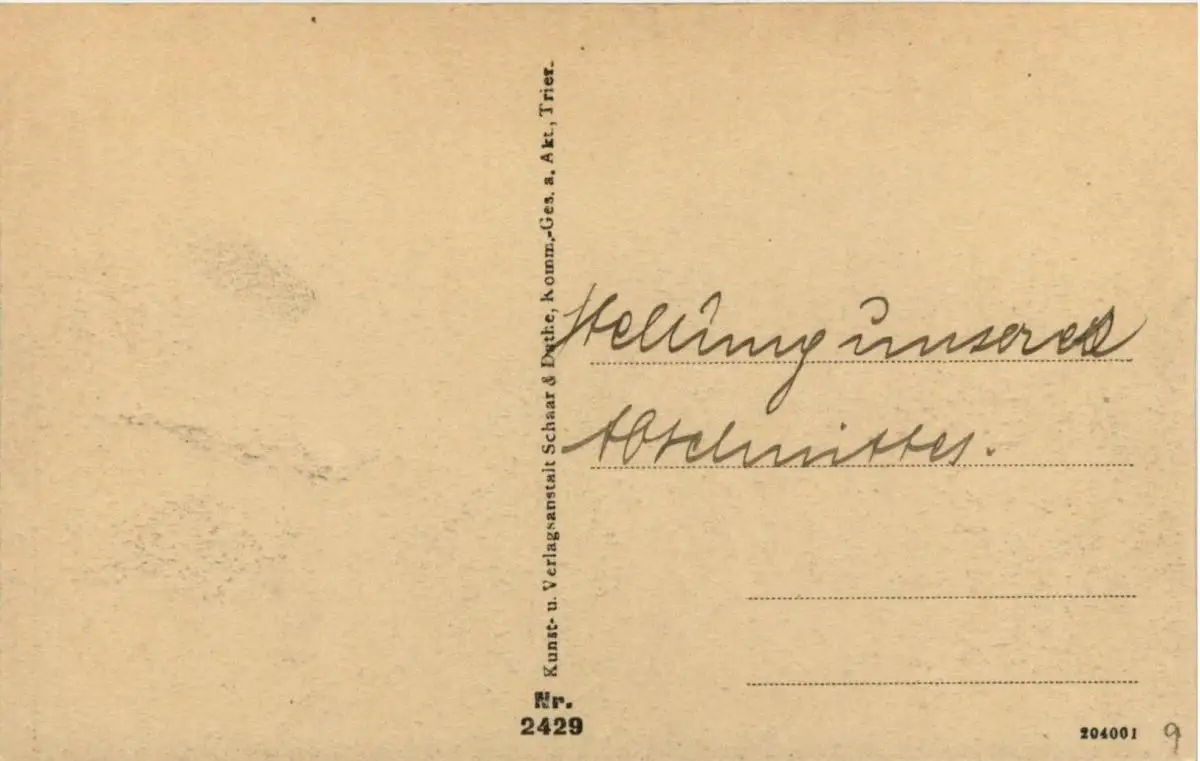 Kunst- u. Verlagsanstalt Schaar & Dathe, Komm.-Ges. a. Akt., Trier.
Stellung unseres
Abschnittes.
Nr.
2429
204001
9